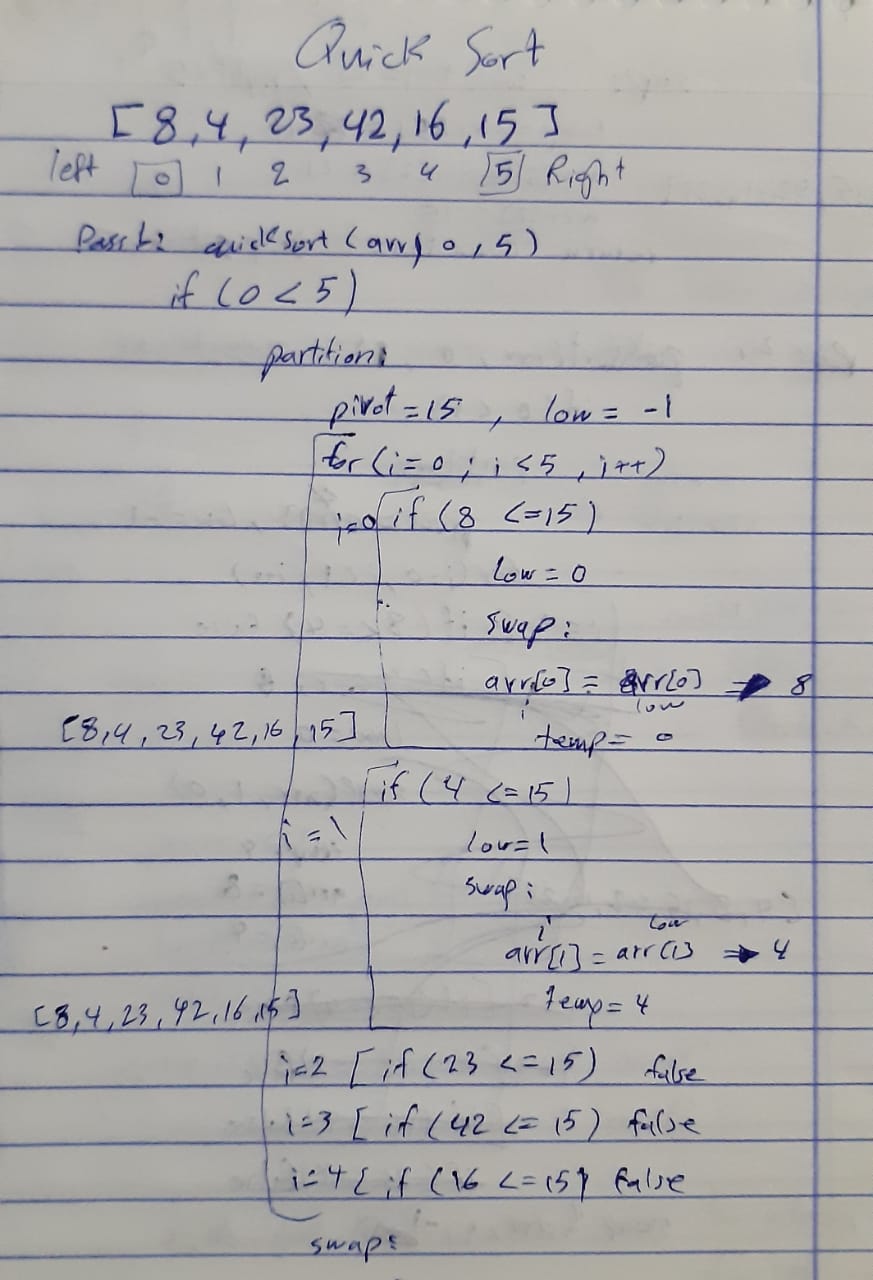 Quick Sort
[8,4,23,42,16,15]
left 0 1 2 3 4 5 Right
Pass 1: quickSort (arr, 0,5)
if (0<5)
partition:
pivot = 15, low = -1
for (i=0; i<5, i++)
i=0 if (8 <=15)
low = 0
swap:
arr[0] = arr[0] → 8
i low
[8,4,23,42,16,15] temp= 0
if (4 <= 15)
i=1 low=1
swap:
i low
arr[1] = arr[1] → 4
[8,4,23,42,16,15] temp= 4
i=2 [ if (23 <=15) false
i=3 [ if (42 <= 15) false
i=4 [ if (16 <=15) false
swap: